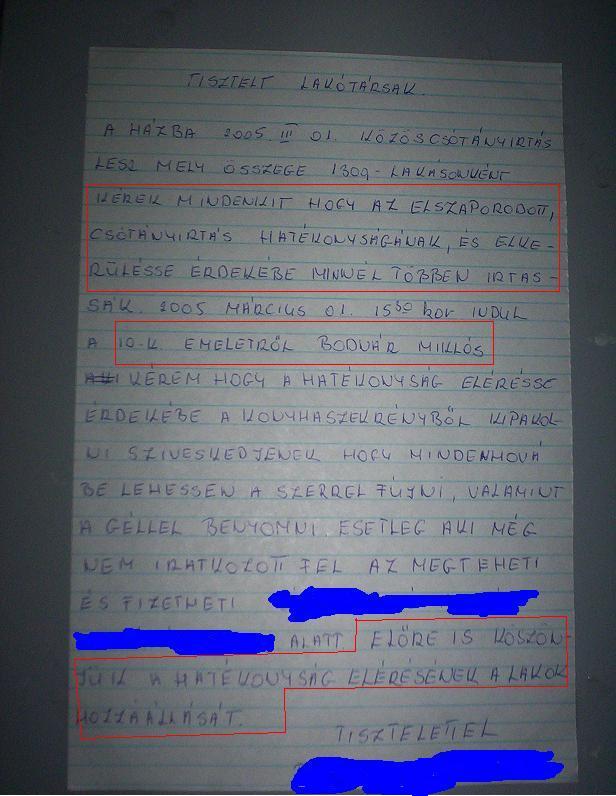 TISZTELT LAKÓTÁRSAK.
A HÁZBA 2005. III 01. KÖZÖS CSÓTÁNYIRTÁS
LESZ MELY ÖSSZEGE 1309- LAKÁSONKÉNT
KÉREK MINDENKIT HOGY AZ ELSZAPORODOTT,
CSÓTÁNYIRTÁS HATÉKONYSÁGÁNAK, ÉS ELKE-
RÜLÉSSE ÉRDEKÉBE MINNÉL TÖBBEN IRTAS-
SÁK. 2005 MÁRCIUS 01. 15³⁰ kor INDUL
A 10-K. EMELETRŐL BODVÁR MIKLÓS
KÉREM HOGY A HATÉKONYSÁG ELÉRÉSSE
ÉRDEKÉBE A KONYHASZEKRÉNYBŐL KIPAKOL-
NI SZIVESKEDJENEK HOGY MINDENHOVÁ
BE LEHESSEN A SZERREL FÚJNI, VALAMINT
A GÉLLEL BENYOMNI. ESETLEG AKI MÉG
NEM IRATKOZOTT FEL AZ MEGTEHETI
ÉS FIZETHETI
ALATT ELŐRE IS KÖSZÖN-
JÜK A HATÉKONYSÁG ELÉRÉSÉNEK A LAKÓK
HOZZÁÁLLÁSÁT.
TISZTELETTEL